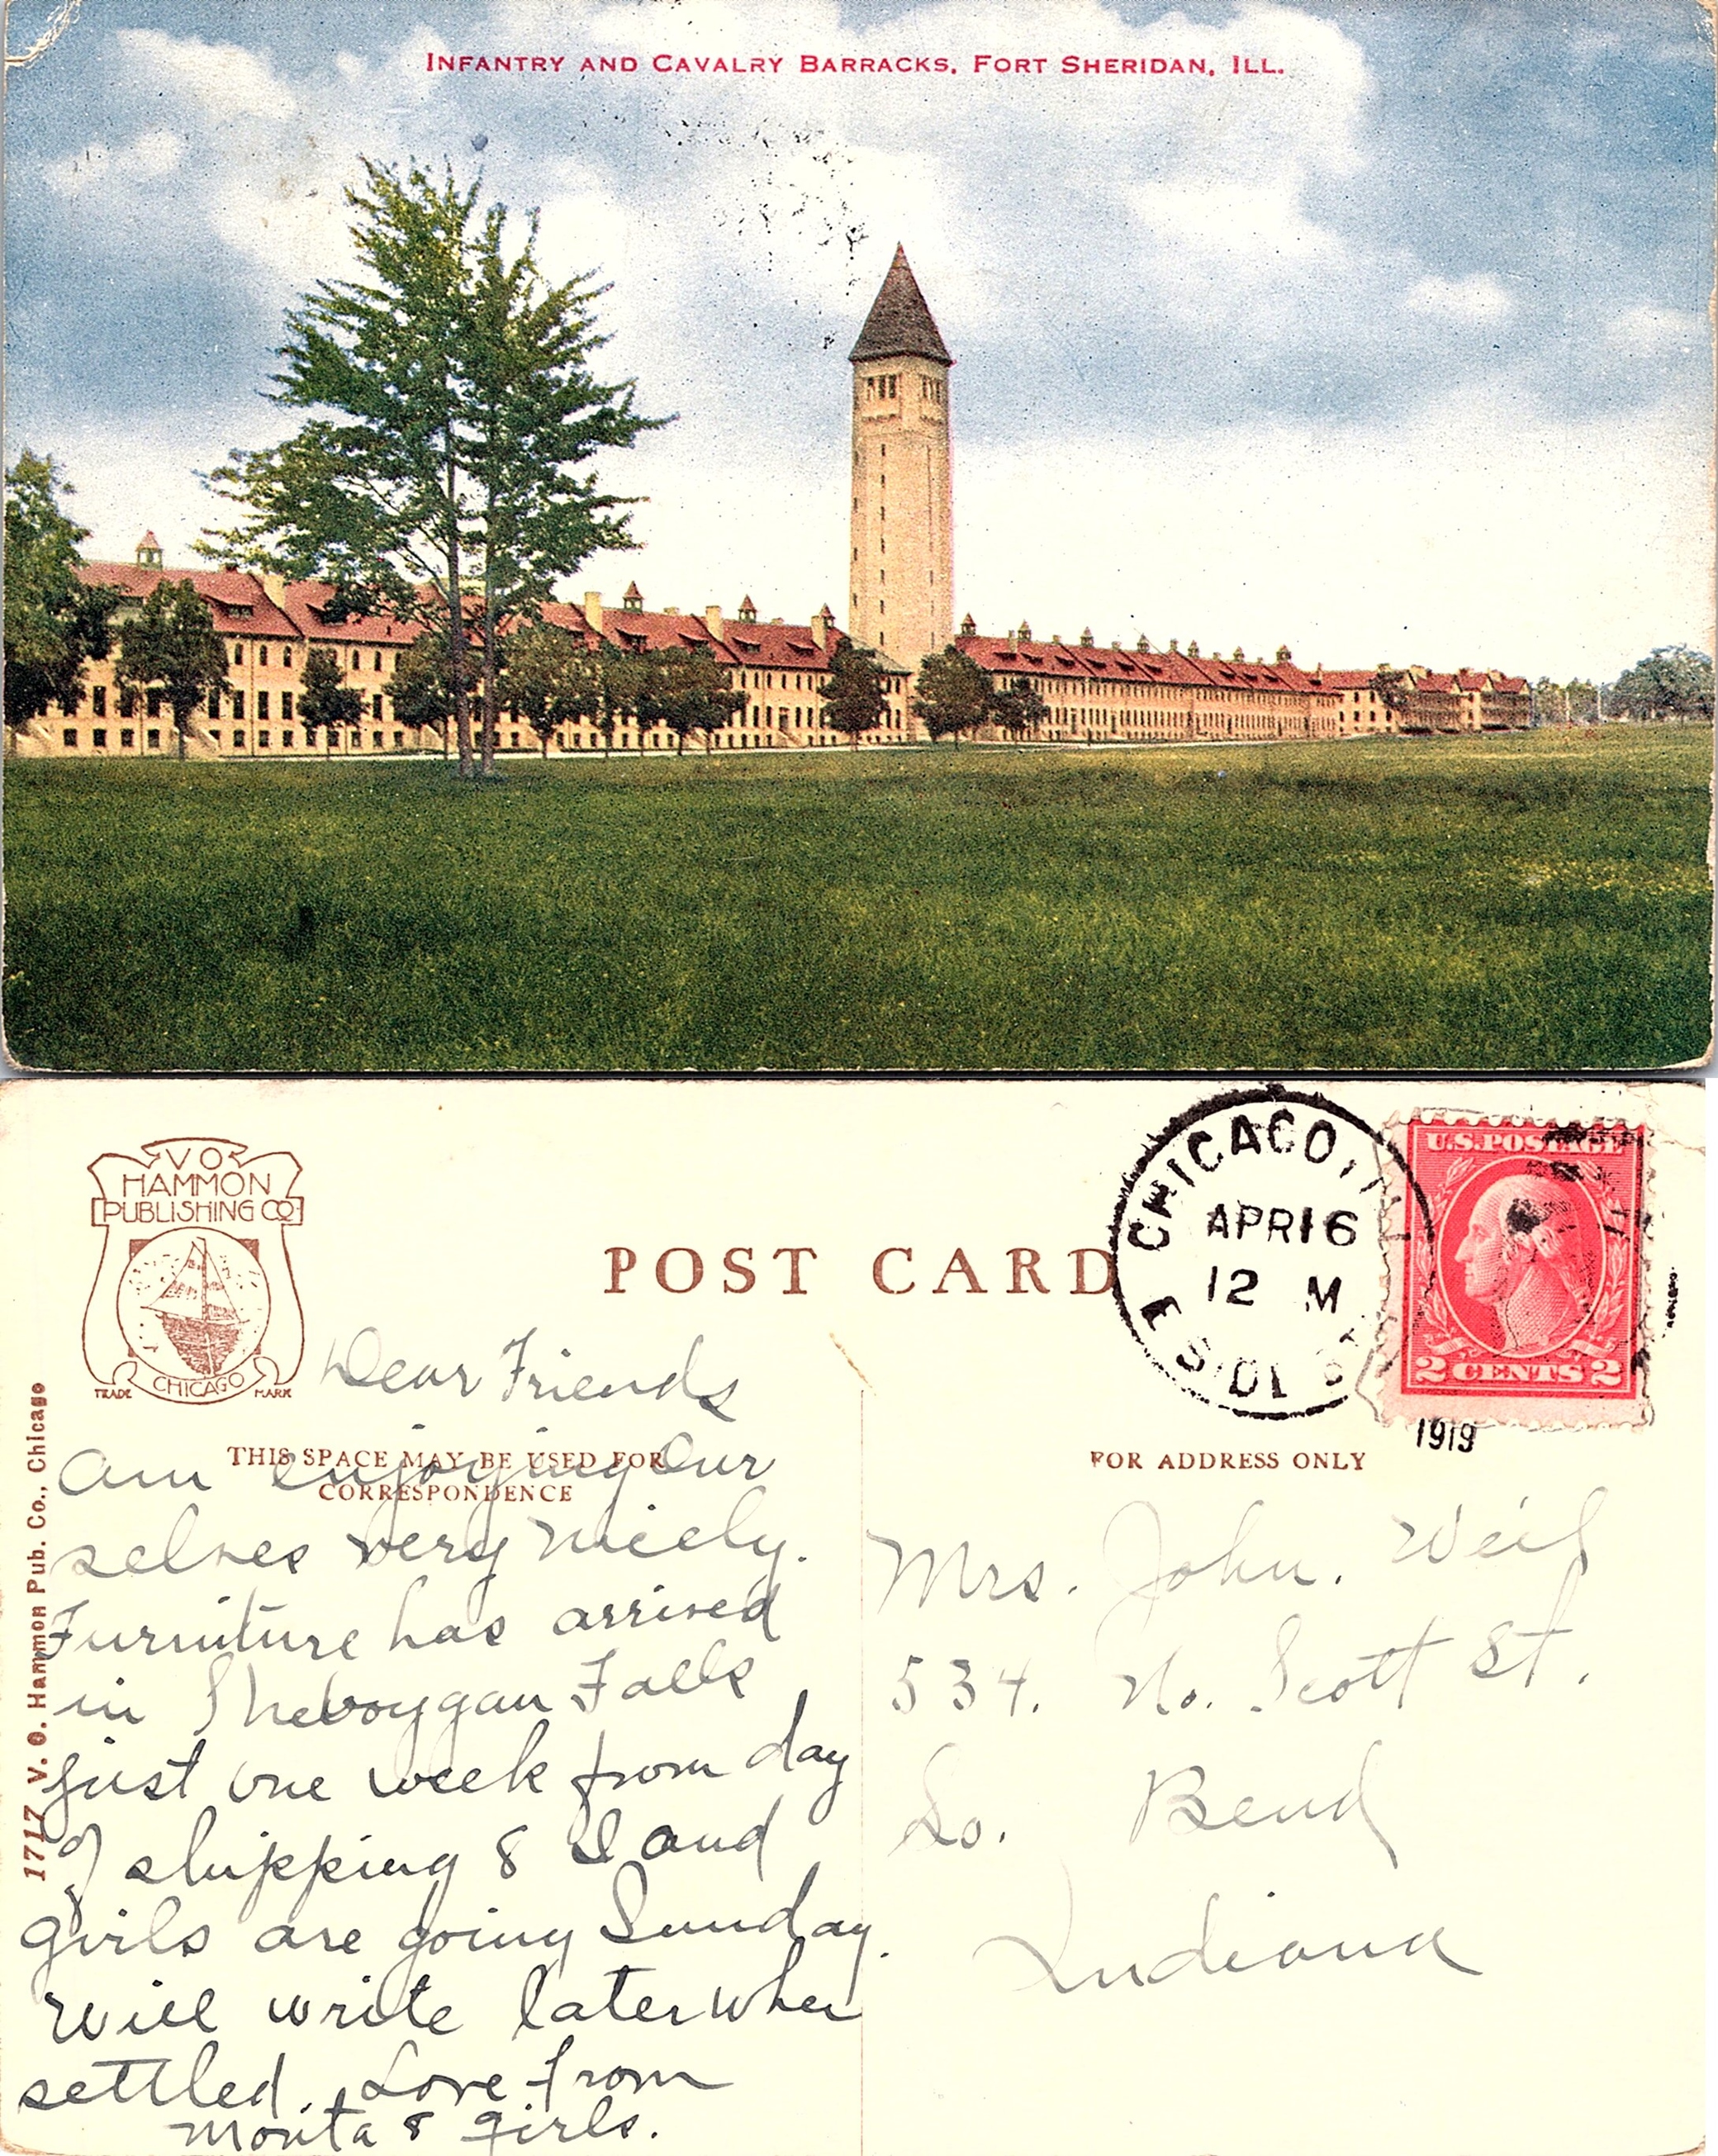 INFANTRY AND CAVALRY BARRACKS, FORT SHERIDAN, ILL.
V O
HAMMON
PUBLISHING CO
TRADE CHICAGO MARK
POST CARD
CHICAGO, ILL
APR 16
12 M
1919
U.S. POSTAGE
2 CENTS 2
THIS SPACE MAY BE USED FOR
CORRESPONDENCE
FOR ADDRESS ONLY
1717 V. O. Hammon Pub. Co., Chicago
Dear Friends
Am enjoying Our
selves very nicely.
Furniture has arrived
in Sheboygan Falls
just one week from day
of shipping & I and
girls are going Sunday.
Will write later when
settled. Love from
& girls.
Mrs. John. Weil
534. No. Scott St.
So. Bend
Indiana